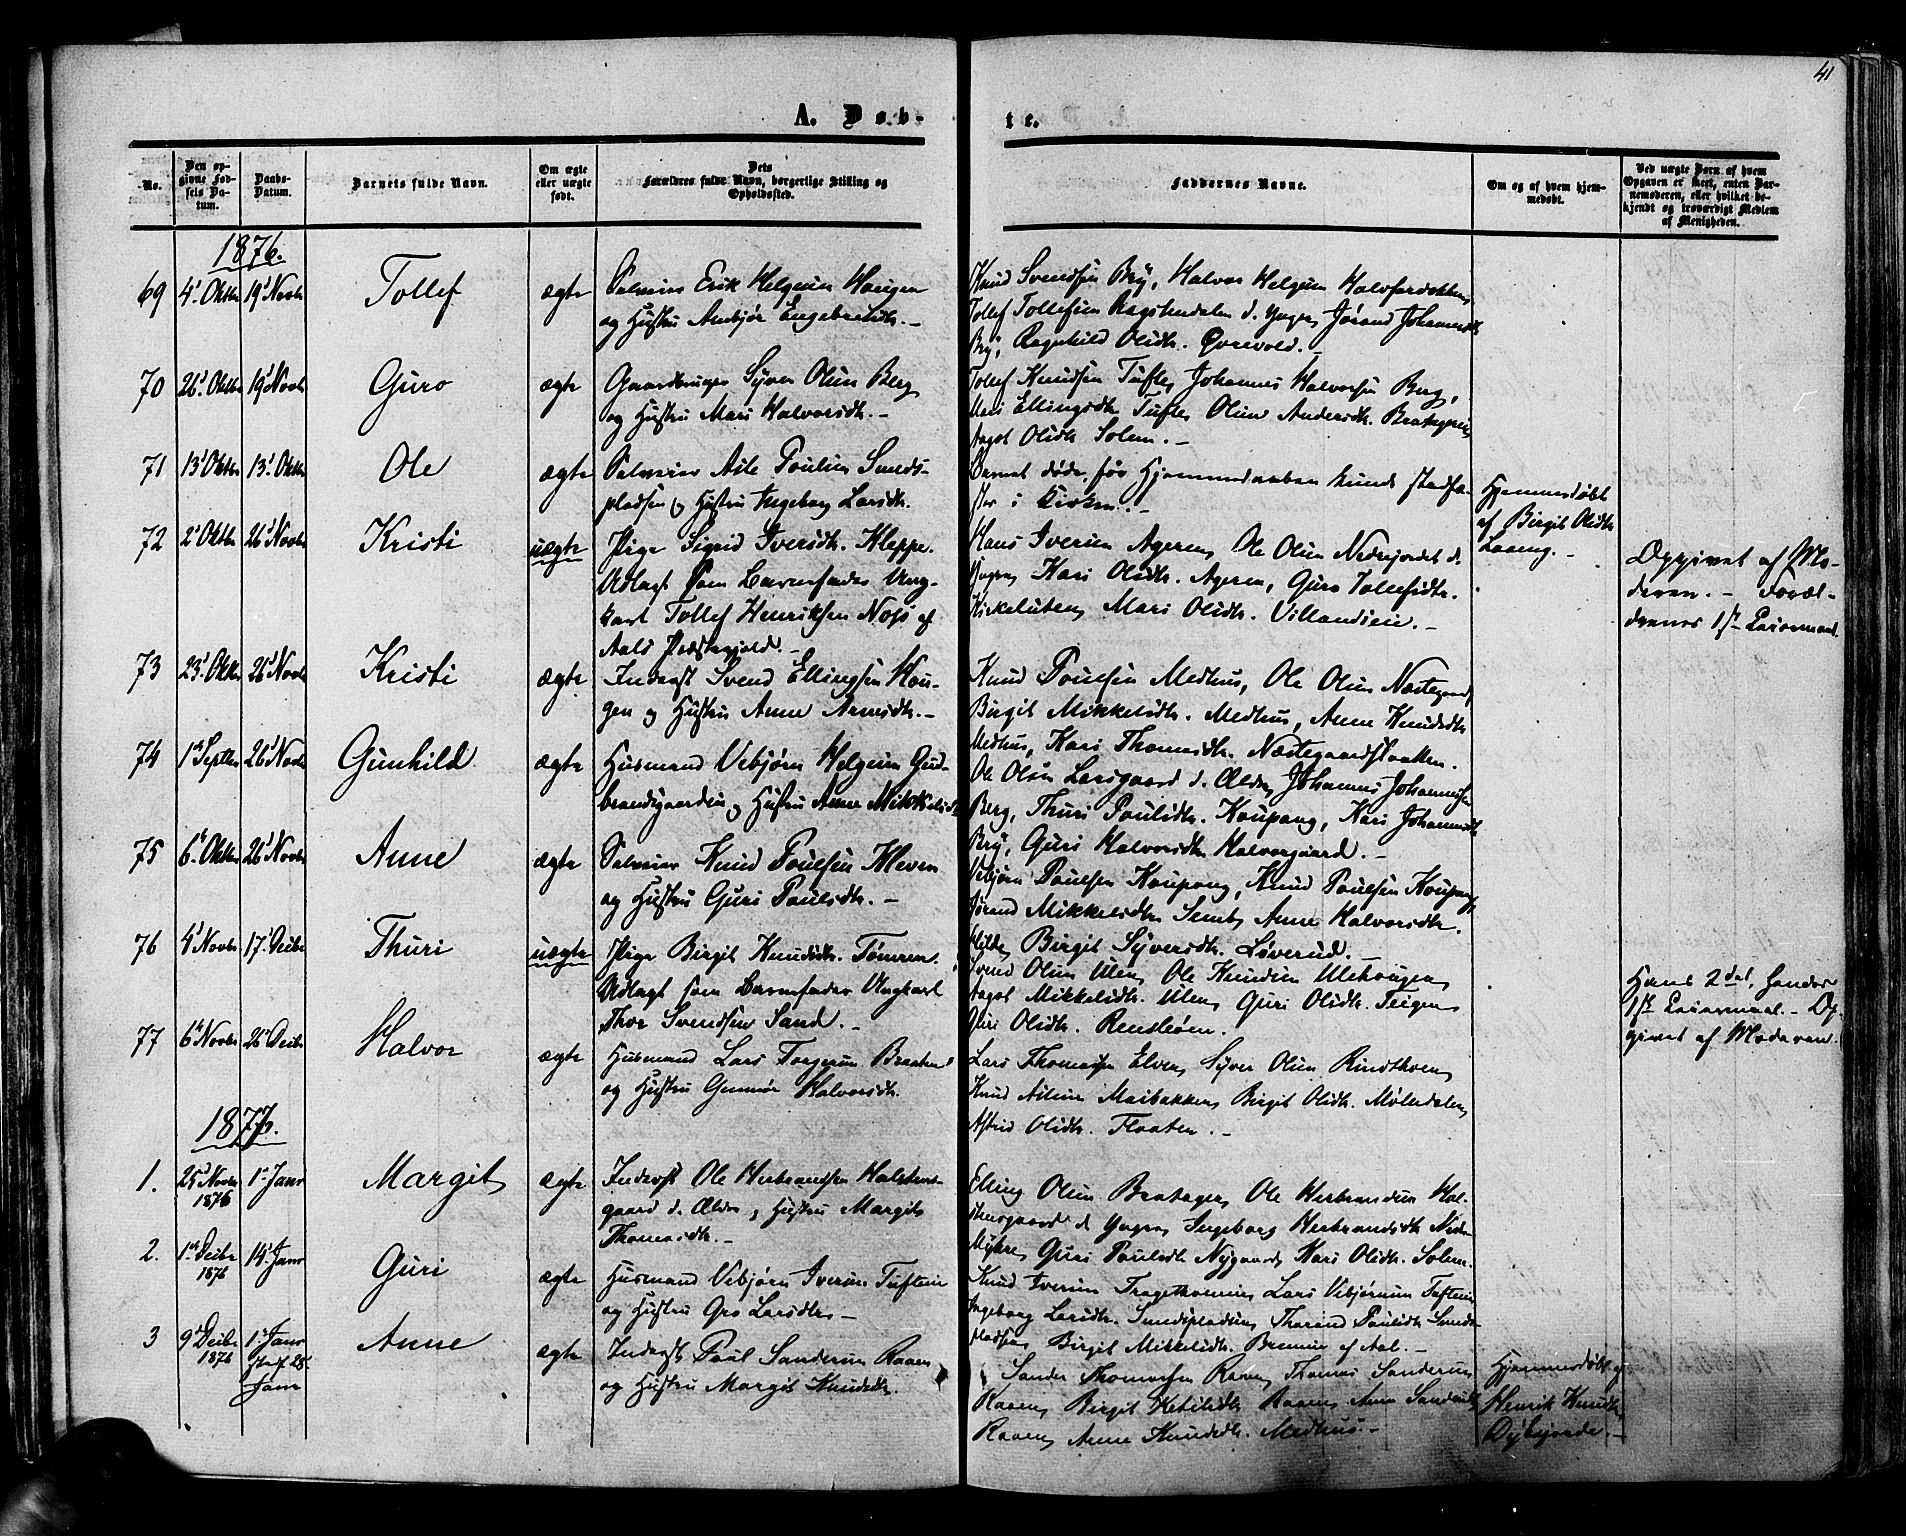 41
A. Døb-
te.
No.
Den opgivne Fødsels Datum.
Daabs-Datum.
Barnets fulde Navn.
Om ægte eller uægte født.
Dets Forældres fulde Navn, borgerlige Stilling og Opholdssted.
Faddernes Navne.
Om og af hvem hjemmedøbt.
Ved uægte Børn af hvem Opgaven er skeet, enten Barnemoderen, eller hvilket bekjendt og troværdigt Medlem af Menigheden.
1876.
69 4. Oktbr 19 Novbr Tollef ægte
og Hustru Ambjør Engebretsdtr. -
Knud Svendsen Bry, Halvor Helgesen Halvfardokken
Tollef Tollefsen d. yngre, Jørand Johannesdtr
Bry, Ragnhild Olsdtr. Øvrevold. -
70 26 Oktbr 19 Novbr Guro ægte
Gaardbruger Syver Olsen Berg
og Hustru Mari Halvorsdtr. -
Tollef Knudsen Tufte, Johannes Halvorsen Berg,
Mari Ellingsdtr Tufte,
Aagot Olsdtr Solem. -
71 13 Oktbr 13 Oktbr Ole ægte
pladsen og Hustru Ingeborg Larsdtr.
Barnet døde, før Hjemmedaaben kunde stadfæ-
stes i Kirken. -
Hjemmedøbt
af Birgit Olsdtr
72 2 Oktbr 26 Novbr Kristi uægte
Pige Sigrid Iversdtr. Kleppe.
Udlagt som Barnefader Ung-
karl Tollef Henriksen Noss af
Aals Præstegjeld. -
Hans Iversen Ageren, Ole Olsen Nedrejordet d.
yngre, Kari Olsdtr. Ageren, Guro Tollefsdtr.
Mari Olsdtr. Villandseie. -
Opgivet af Mo-
deren. - Foræl-
drenes 1ste Leiermaal.
73 23. Oktbr 26 Novbr Kristi ægte
Inderst Svend Ellingsen Hau-
gen og Hustru Anne Arnesdtr. -
Knud Poulsen Medhus, Ole Olsen Næstegaard,
Birgit Mikkelsdtr. Medhus, Anne Knudsdtr
Medhus, Kari Thomasdtr. Næstegaardsbakken.
74 1ste Septbr 26 Novbr Gunhild ægte
Husmand Vebjørn Helgesen Gud-
brandsgaarden og Hustru Anne Mikkelsdtr
Ole Olsen Larsgaard d. Ældre, Johannes Johannessen
Berg, Thuri Poulsdtr. Koupang, Kari Johannesdtr
Bry, Guri Halvorsdtr Halvorsgaard. -
75 6te Oktbr 26 Novbr Anne ægte
Selveier Knud Poulsen Kleven
og Hustru Guri Poulsdtr. -
Vebjørn Poulsen Koupang, Knud Poulsen Koupang,
Jørand Mikkelsdtr Anne Halvorsdtr.
Birgit Syversdtr. Løverud. -
76 4 Novbr 17 Decbr Thuri uægte
Pige Birgit Knudsdtr.
Udlagt som Barnefader Ungkarl
Thor Svendsen Sand. -
Svend Olsen Ulen, Ole Knudsen Ulehougen,
Aagot Mikkelsdtr. Ulen, Guri Olsdtr. Teigen,
Guri Olsdtr.
Hans 2det, hendes
1ste Leiermaal. - Op-
givet af Moderen.
77 6te Novbr 26 Decbr Halvor ægte
Husmand Lars Torgersen Braaten
og Hustru Gunnør Halvorsdtr.
Lars Thomassen Elven, Syver Olsen
Knud Maibakken, Birgit Olsdtr. Møledalen,
Astrid Olsdtr. Flaaten. -
1877.
1. 25 Novbr 1876 1ste Janr Margit ægte
Inderst Ole Herbrandsen Halstens-
gaard d. Ældre og Hustru Margit
Thomasdtr. -
Elling Olsen Bratager, Ole Herbrandsen Hal-
stensgaard d. yngre, Ingeborg Herbrandsdtr
Myhre, Guri Poulsdtr Nygaard, Kari Olsdtr. Solem.
2. 1ste Decbr 1876 14 Janr Guri ægte
Husmand Vebjørn Iversen Tufteie
og Hustru Gro Larsdtr. -
Knud Iversen Lars Vebjørnsen Tufteie
Ingeborg Larsdtr. Sundspladsen, Poulsdtr Sunds-
pladsen, Birgit Mikkelsdtr. af Aal. -
3 9 Decbr 1876 1ste Janr 28 Janr Anne ægte
Inderst Poul Sandersen Raaen
og Hustru Margit Knudsdtr.
Sander Thomassen Raaen, Thomas Sandersen
Raaen, Birgit Ketilsdtr Raaen, Anne Sandersdtr
Raaen, Anne Knudsdtr. Medhus. -
Hjemmedøbt af
Henrik